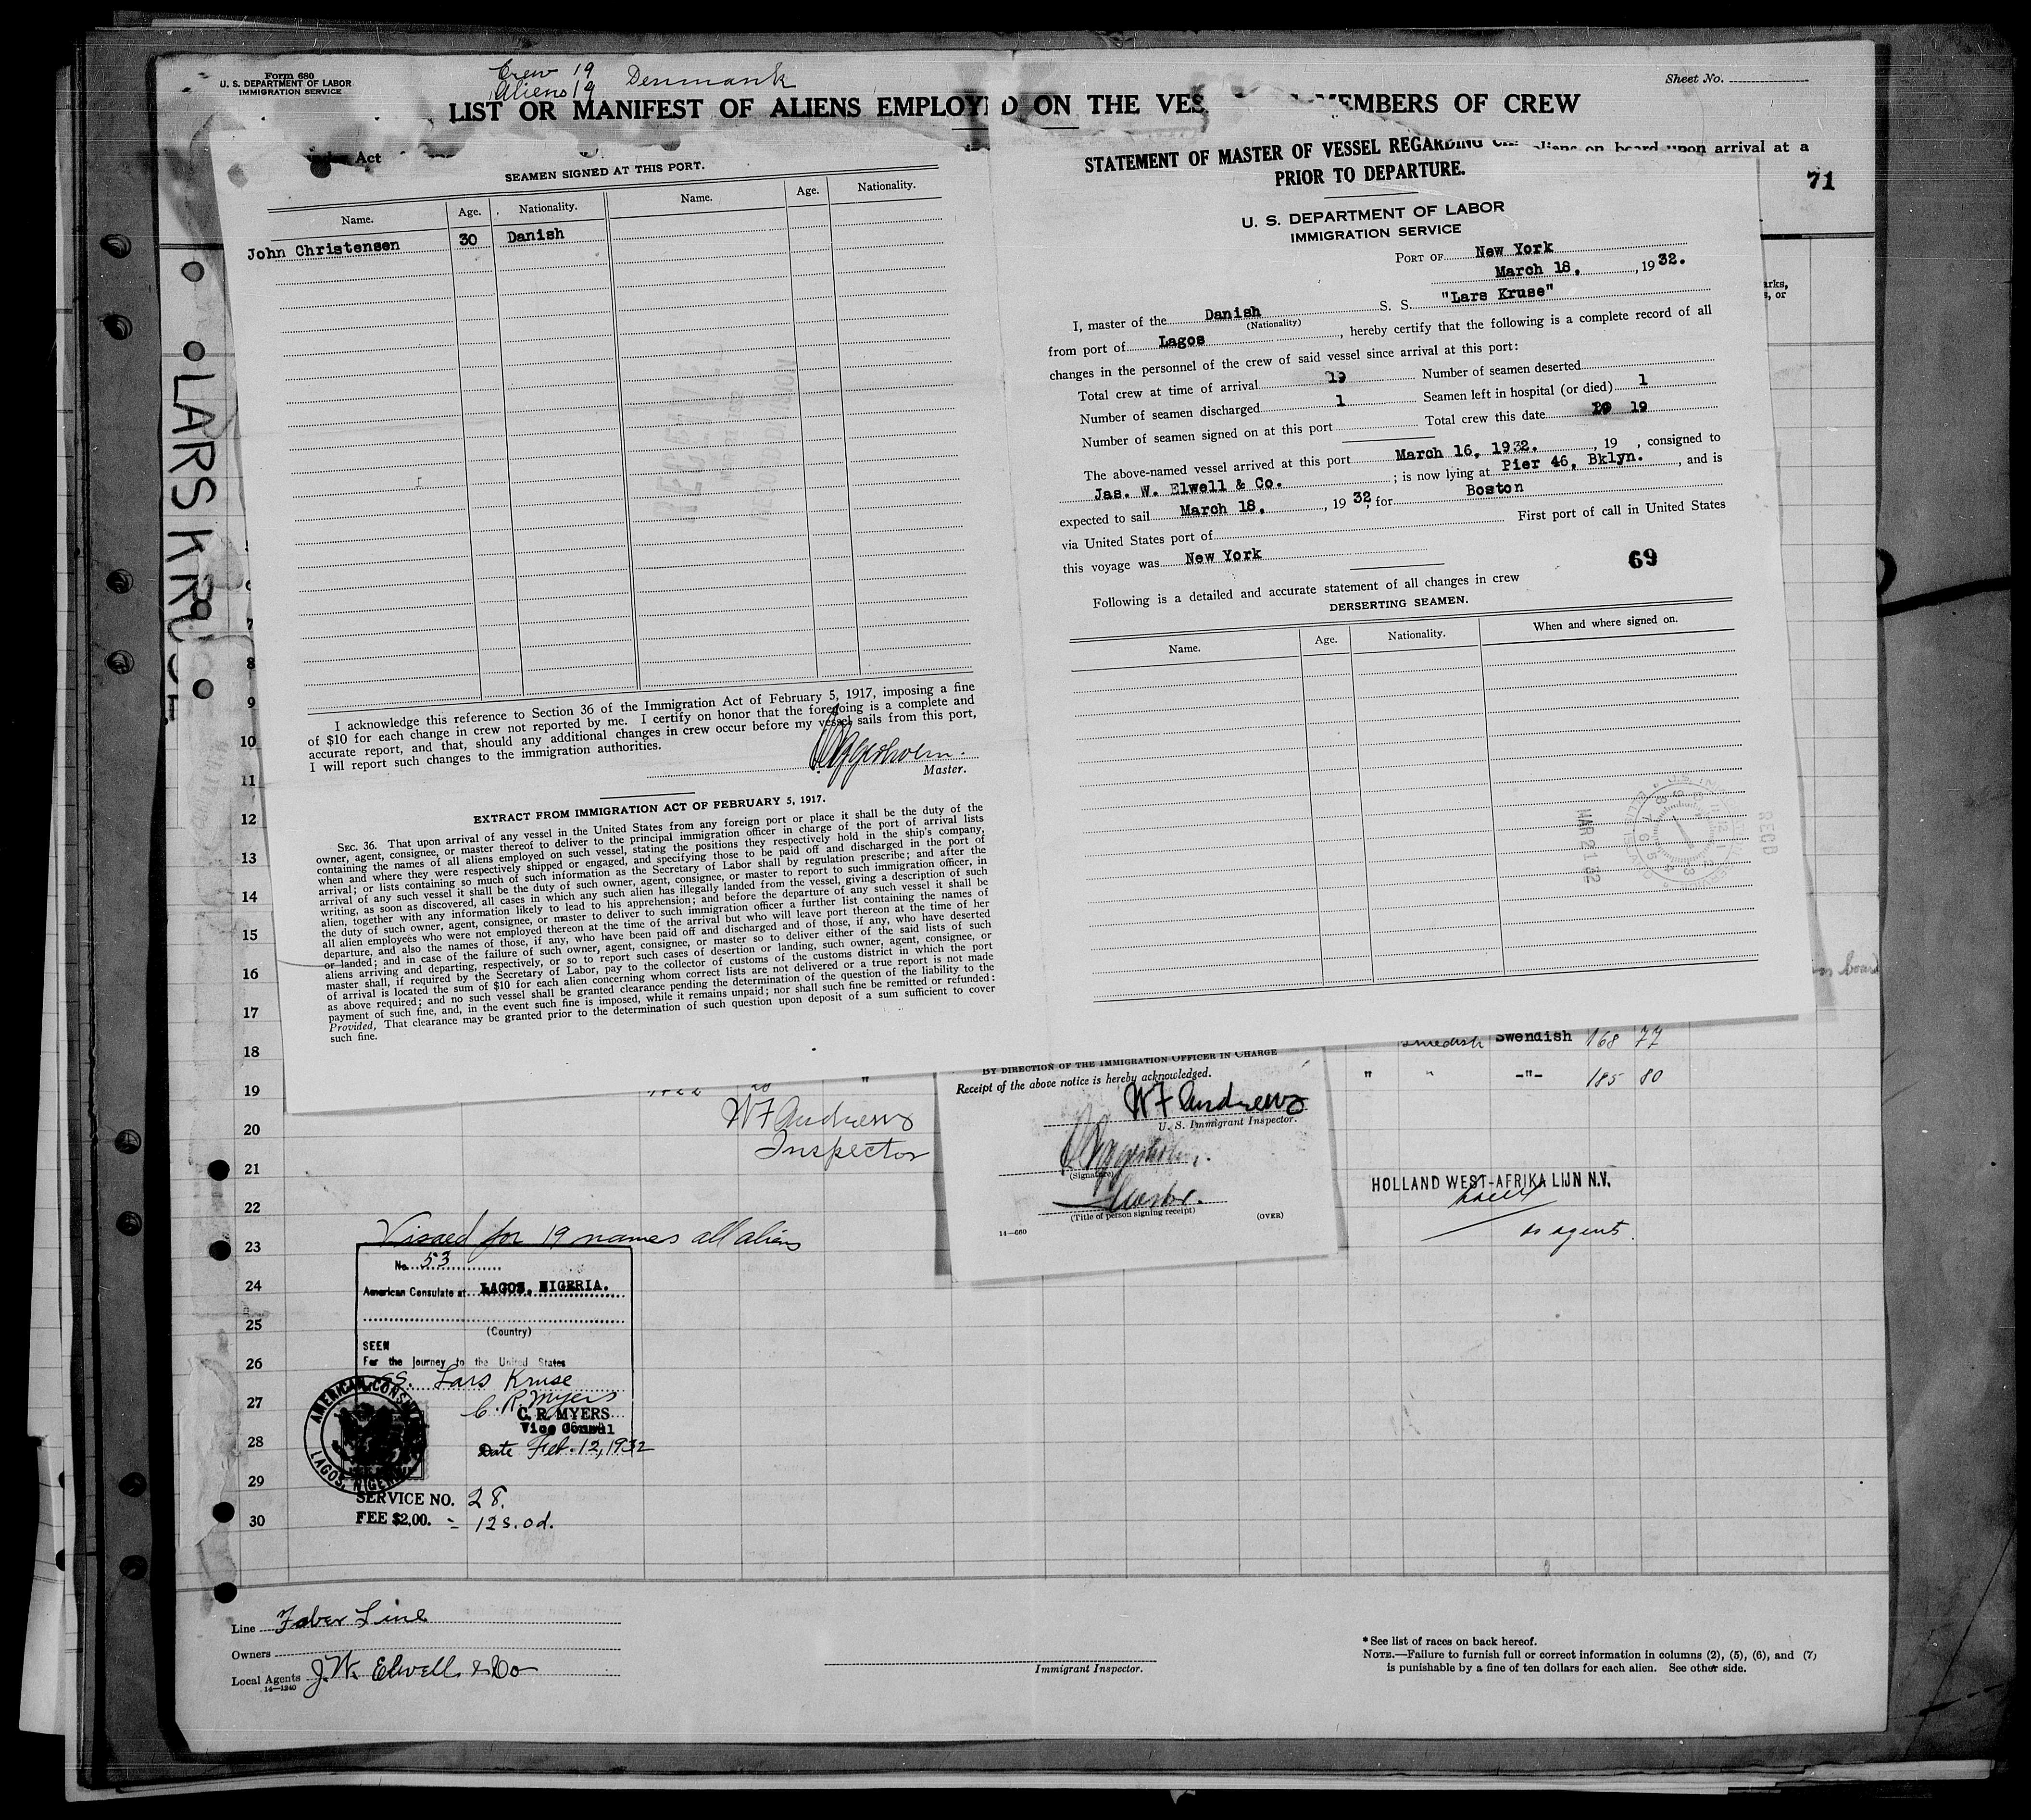 Form 680
U. S. DEPARTMENT OF LABOR
IMMIGRATION SERVICE
Crew 19
Aliens 19
Denmark
Sheet No.
LIST OR MANIFEST OF ALIENS EMPLOYED ON THE VES MEMBERS OF CREW
Act
aliens on board upon arrival at a
71
LARS KRUSE
SEAMEN SIGNED AT THIS PORT.
Name. Age. Nationality. Name. Age. Nationality.
John Christensen 30 Danish
I acknowledge this reference to Section 36 of the Immigration Act of February 5, 1917, imposing a fine
of $10 for each change in crew not reported by me. I certify on honor that the foregoing is a complete and
accurate report, and that, should any additional changes in crew occur before my vessel sails from this port,
I will report such changes to the immigration authorities.
Master.
EXTRACT FROM IMMIGRATION ACT OF FEBRUARY 5, 1917.
SEC. 36. That upon arrival of any vessel in the United States from any foreign port or place it shall be the duty of the
owner, agent, consignee, or master thereof to deliver to the principal immigration officer in charge of the port of arrival lists
containing the names of all aliens employed on such vessel, stating the positions they respectively hold in the ship's company,
when and where they were respectively shipped or engaged, and specifying those to be paid off and discharged in the port of
arrival; or lists containing so much of such information as the Secretary of Labor shall by regulation prescribe; and after the
arrival of any such vessel it shall be the duty of such owner, agent, consignee, or master to report to such immigration officer, in
writing, as soon as discovered, all cases in which any such alien has illegally landed from the vessel, giving a description of such
alien, together with any information likely to lead to his apprehension; and before the departure of any such vessel it shall be
the duty of such owner, agent, consignee, or master to deliver to such immigration officer a further list containing the names of
all alien employees who were not employed thereon at the time of the arrival but who will leave port thereon at the time of her
departure, and also the names of those, if any, who have been paid off and discharged and of those, if any, who have deserted
or landed; and in case of the failure of such owner, agent, consignee, or master so to deliver either of the said lists of such
aliens arriving and departing, respectively, or so to report such cases of desertion or landing, such owner, agent, consignee, or
master shall, if required by the Secretary of Labor, pay to the collector of customs of the customs district in which the port
of arrival is located the sum of $10 for each alien concerning whom correct lists are not delivered or a true report is not made
as above required; and no such vessel shall be granted clearance pending the determination of the question of the liability to the
payment of such fine, and, in the event such fine is imposed, while it remains unpaid; nor shall such fine be remitted or refunded:
Provided, That clearance may be granted prior to the determination of such question upon deposit of a sum sufficient to cover
such fine.
STATEMENT OF MASTER OF VESSEL REGARDING
PRIOR TO DEPARTURE.
U. S. DEPARTMENT OF LABOR
IMMIGRATION SERVICE
PORT OF New York
March 18, , 1932.
I, master of the Danish S. S. "Lars Kruse"
(Nationality)
from port of Lagos , hereby certify that the following is a complete record of all
changes in the personnel of the crew of said vessel since arrival at this port:
Total crew at time of arrival 19 Number of seamen deserted
Number of seamen discharged 1 Seamen left in hospital (or died) 1
Number of seamen signed on at this port Total crew this date 19
The above-named vessel arrived at this port March 16, 1932. , 19 , consigned to
Jas. W. Elwell & Co. ; is now lying at Pier 46, Bklyn. , and is
expected to sail March 18, , 1932, for Boston
via United States port of First port of call in United States
this voyage was New York
69
Following is a detailed and accurate statement of all changes in crew
DERSERTING SEAMEN.
Name. Age. Nationality. When and where signed on.
REC'D
MAR 21 32
8
9
10
11
12
13
14
15
16
17
18 Swedish Swendish 168 77
19 " " -"- 185 80
20
21
22
23
24
25
26
27
28
29
30
W F Andrews
Inspector
BY DIRECTION OF THE IMMIGRATION OFFICER IN CHARGE
Receipt of the above notice is hereby acknowledged.
W F Andrews
U. S. Immigrant Inspector.
(Signature)
Master.
(Title of person signing receipt)
(OVER)
14—660
HOLLAND WEST-AFRIKA LIJN N.V.
as agents.
Visaed for 19 names all aliens
No. 53
American Consulate at LAGOS, NIGERIA.
(Country)
SEEN
For the journey to the United States
SS. Lars Kruse
C. R. Myers
C. R. MYERS
Vice Consul
Date Feb. 12, 1932
AMERICAN CONSULATE
LAGOS, NIGERIA
SERVICE NO. 28.
FEE $2.00. = 12s.0d.
Line Faber Line
Owners
Local Agents J.W. Elwell & Co
14—1240
Immigrant Inspector.
* See list of races on back hereof.
NOTE.—Failure to furnish full or correct information in columns (2), (5), (6), and (7)
is punishable by a fine of ten dollars for each alien. See other side.